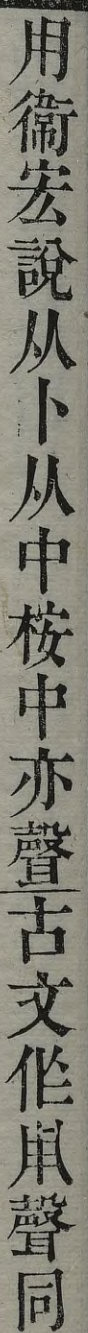 用衞宏說从卜从中桉中亦聲古文作𠂵聲同